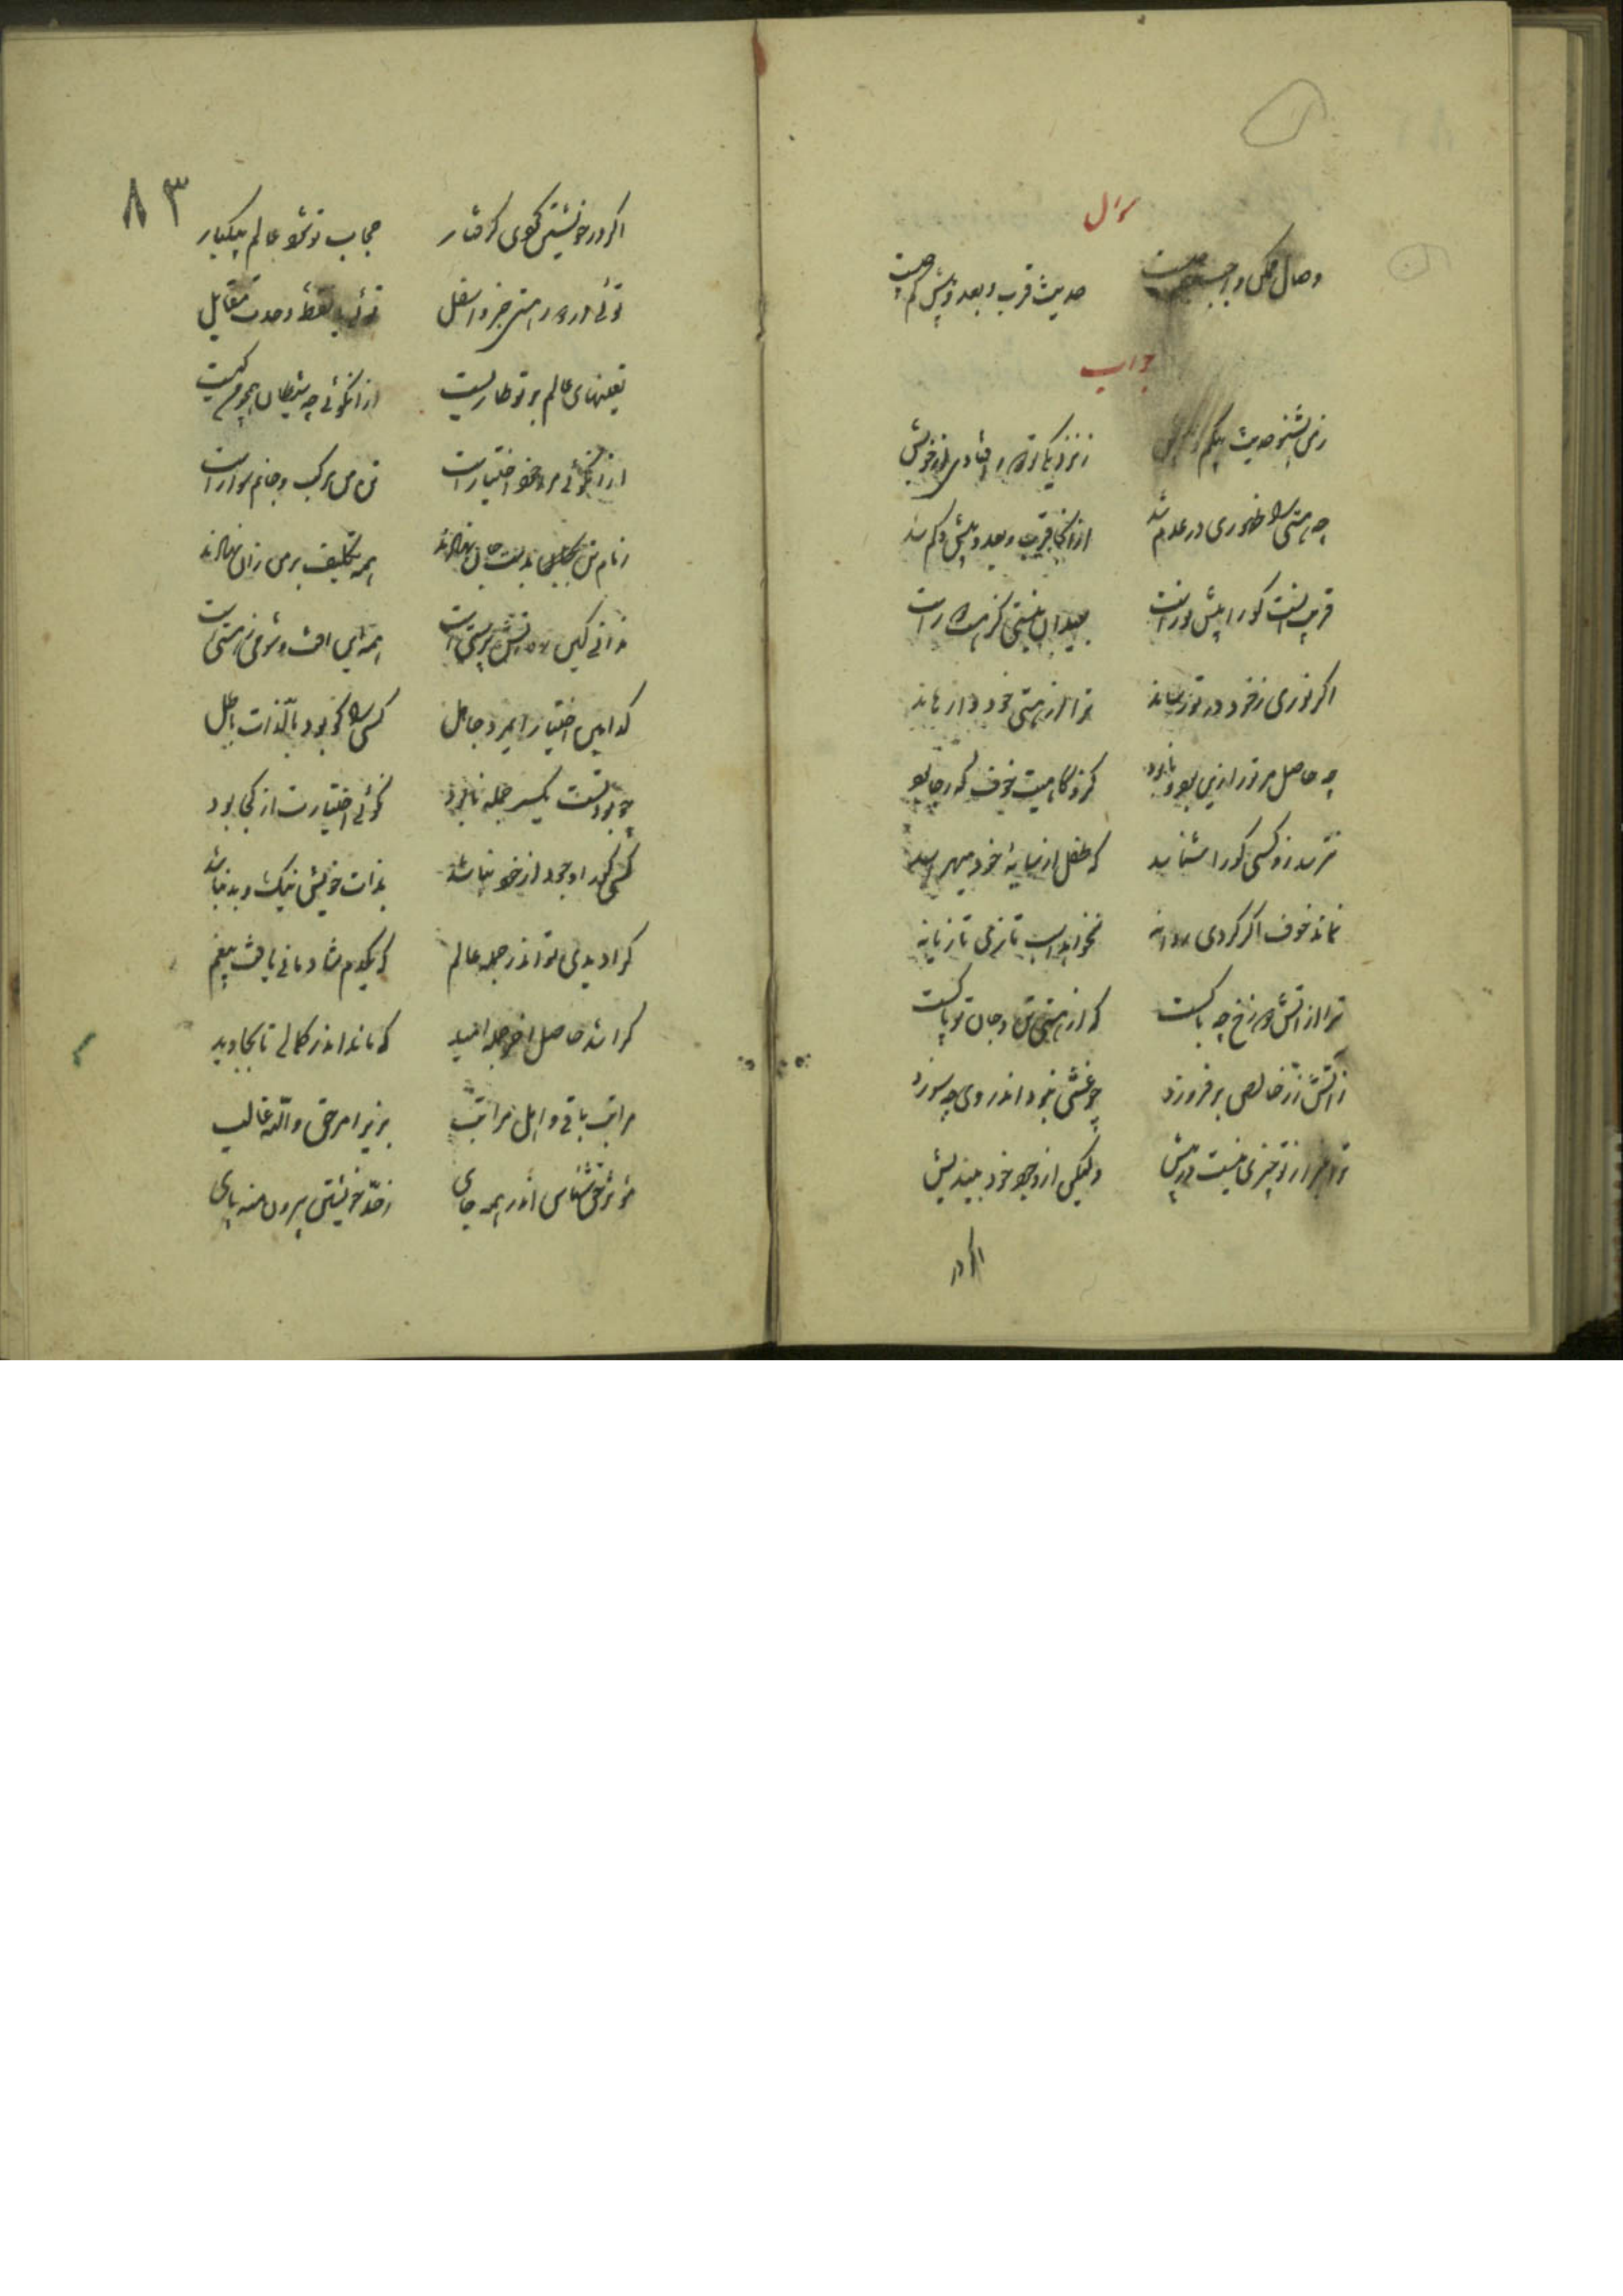 سوال
وصال ممکن و واجب بهم چیست حدیث قرب و بعد و بیش و کم چیست
جواب
ز من بشنو حدیث بی کم و بیش ز نزدیکی تو دور افتادی از خویش
چه هستی را ظهوری در عدم شد از آنجا قرب و بعد و بیش و کم شد
قریب آنست کورا رش نور است بعید آن نیستی کز هست دور است
اگر نوری ز خود در تو رساند ترا از هستی خود وا رهاند
چه حاصل مر ترا زین بود و نابود کزو گاهیت خوف و گه رجا بود
نترسد زو کسی کورا شناسد که طفل از سایهٔ خود میهراسد
نماند خوف اگر گردی روانه نخواهد اسب تازی تازیانه
ترا از آتش دوزخ چه باکست که از هستی تن و جان تو پاکست
از آتش زر خالص برفروزد چو غشی نبود اندر وی چه سوزد
ترا غیر از تو چیزی نیست در پیش ولیکن از وجود خود بیندیش
اگر در
۸۳
اگر در خویشتن گردی گرفتار حجاب تو شود عالم بیکبار
توئی در دور هستی جزو اسفل توئی با نقطهٔ وحدت مقابل
تعینهای عالم بر تو طاریست از آن گوئی چه شیطان همچو من کیست
از آن گوئی مرا خود اختیارست تن من مرکب و جانم سوارست
زمام تن بدست جان نهادند همه تکلیف بر من زان نهادند
ندانی کین ره آتش پرستیست همه این آفت و شومی ز هستیست
کدامین اختیار ای مرد جاهل کسی را کو بود بالذات باطل
چو بود تست یکسر جمله نابود نگوئی اختیارت از کجا بود
کسی کورا وجود از خود نباشد بذات خویش نیک و بد نباشد
کرا دیدی تو اندر جمله عالم که یکدم شادمانی یافت بیغم
کرا شد حاصل آخر جمله امید که ماند اندر کمالی تا بجاوید
مراتب باقی و اهل مراتب بزیر امر حق والله غالب
مؤثر حق شناس اندر همه جای ز حد خویشتن بیرون منه پای